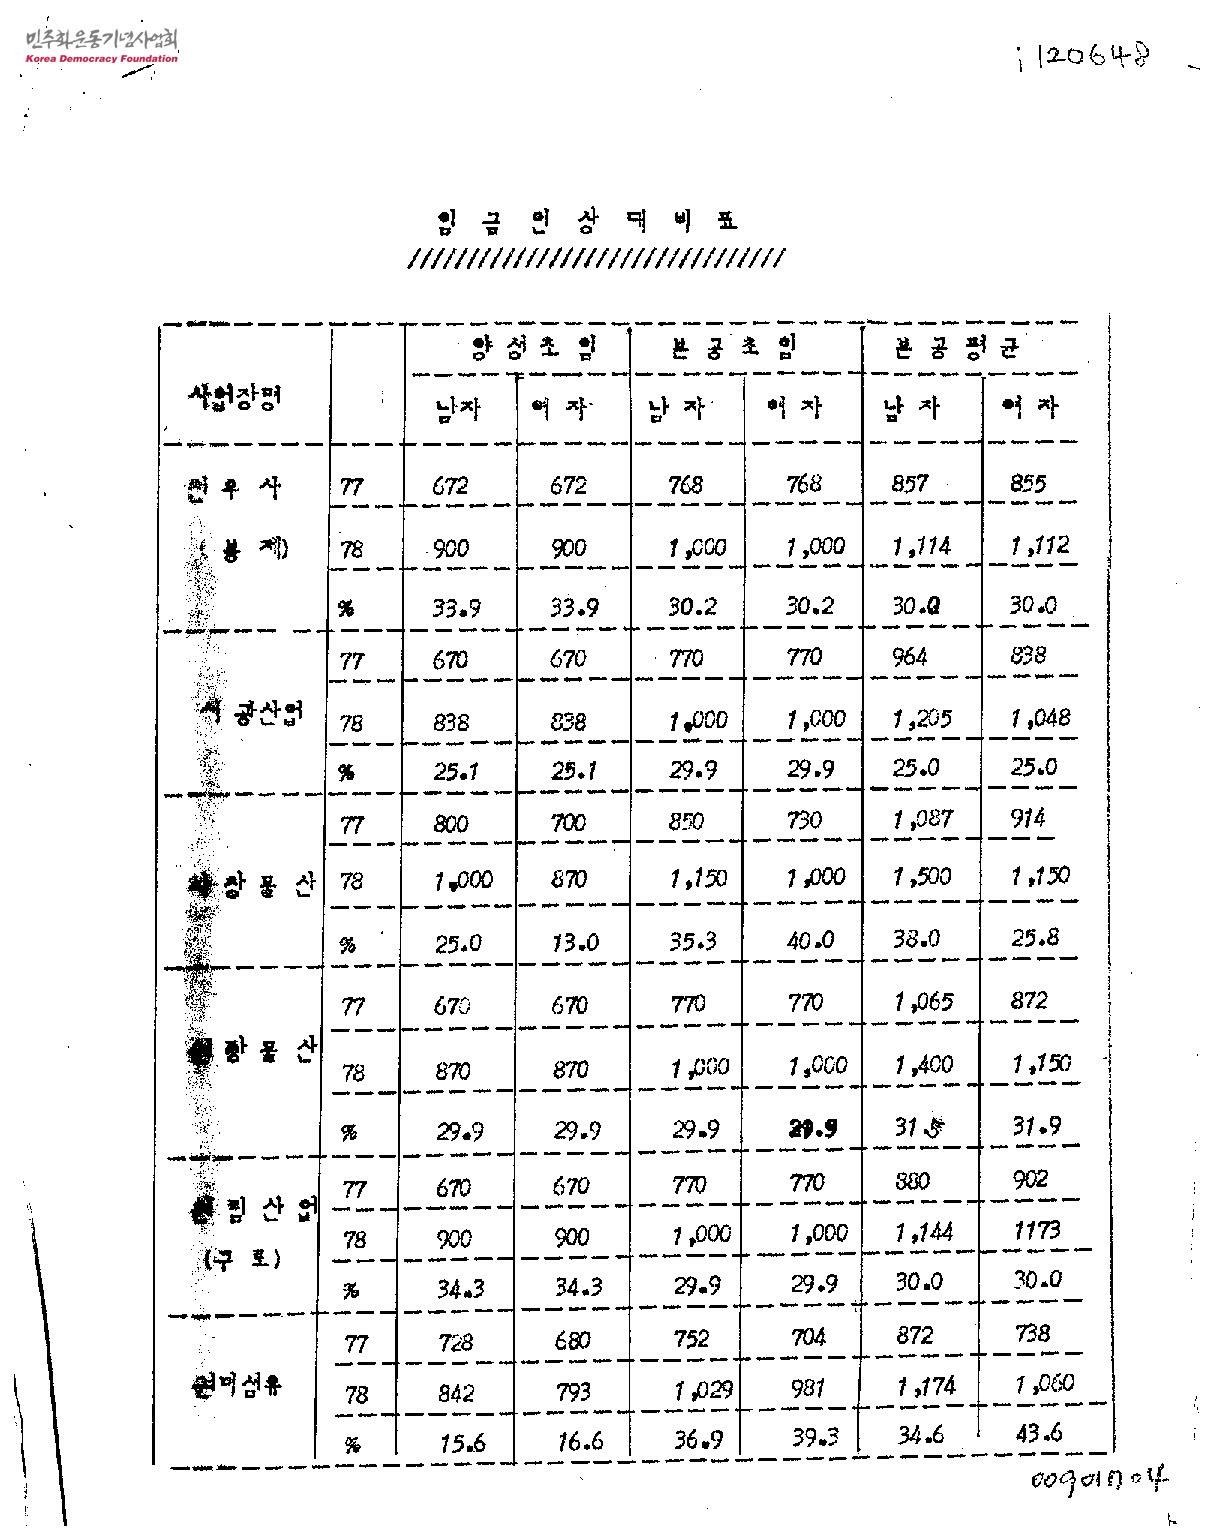 민주화운동기념사업회
Korea Democracy Foundation
i120648
임 금 인 상 대 비 표
////////////////////////////////
사업장명 양성초임 본공초임 본공평균
남자 여자 남자 여자 남자 여자
우 사 77 672 672 768 768 857 855
(봉 제) 78 900 900 1,000 1,000 1,114 1,112
% 33.9 33.9 30.2 30.2 30.0 30.0
77 670 670 770 770 964 838
광산업 78 838 838 1,000 1,000 1,205 1,048
% 25.1 25.1 29.9 29.9 25.0 25.0
77 800 700 850 730 1,087 914
물 산 78 1,000 870 1,150 1,000 1,500 1,150
% 25.0 13.0 35.3 40.0 38.0 25.8
77 670 670 770 770 1,065 872
물 산 78 870 870 1,000 1,000 1,400 1,150
% 29.9 29.9 29.9 29.9 31.5 31.9
77 670 670 770 770 880 902
림 산 업 78 900 900 1,000 1,000 1,144 1173
(구 로) % 34.3 34.3 29.9 29.9 30.0 30.0
77 728 680 752 704 872 738
미섬유 78 842 793 1,029 981 1,174 1,060
% 15.6 16.6 36.9 39.3 34.6 43.6